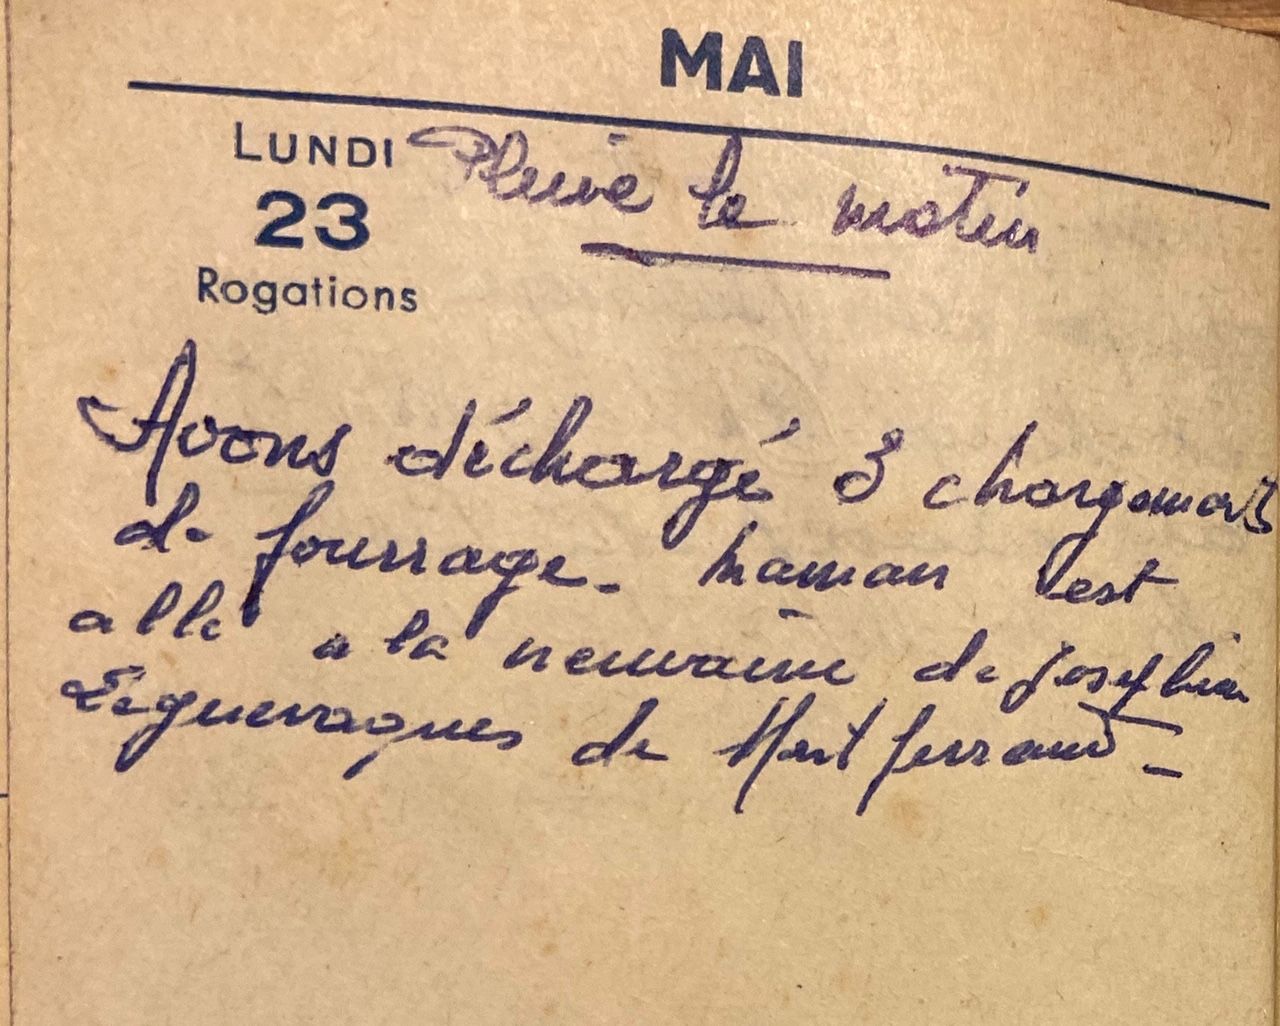 MAI
LUNDI
23
Rogations
Pluie le matin
Avons déchargé 3 chargements
de fourrage. Maman est
allé a la neuvaine de Joséphine
Léguevaques de Montferrand -